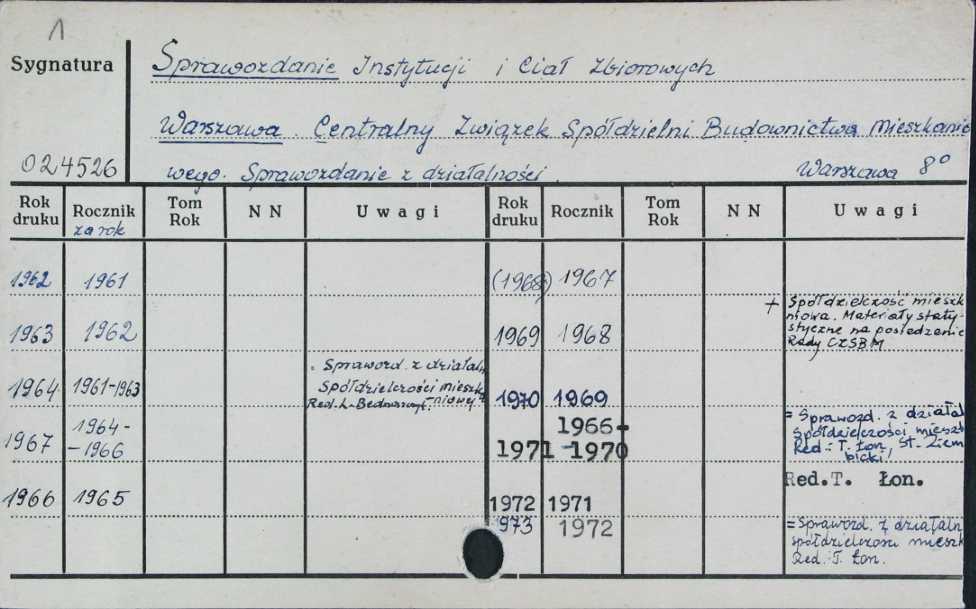 1
Sygnatura
Sprawozdanie Instytucji i Ciał Zbiorowych
Warszawa. Centralny Związek Spółdzielni Budownictwa Mieszkanio
024526
wego. Sprawozdanie z działalności. Warszawa 8°
Rok druku Rocznik za rok Tom Rok NN Uwagi Rok druku Rocznik Tom Rok NN Uwagi
1962 1961 (1968) 1967
1963 1962 1969 1968 + Spółdzielczość mieszk
niowa. Materiały staty-
styczne na posiedzenie
Rady CZSBM
1964 1961-1963 Sprawozd. z działaln
Spółdzielczości mieszka
niowej.
Red. L.
1970 1969
1967 1964-
-1966
1971 1966-
-1970
= Sprawozd. z działal
Spółdzielczości mieszk
Red.: T. Łon, St. Ziem
bicki,
1966 1965 1972 1971 Red. T. Łon.
973 1972 = Sprawozd. z działaln
spółdzielczości mieszk
Red. T. Łon.